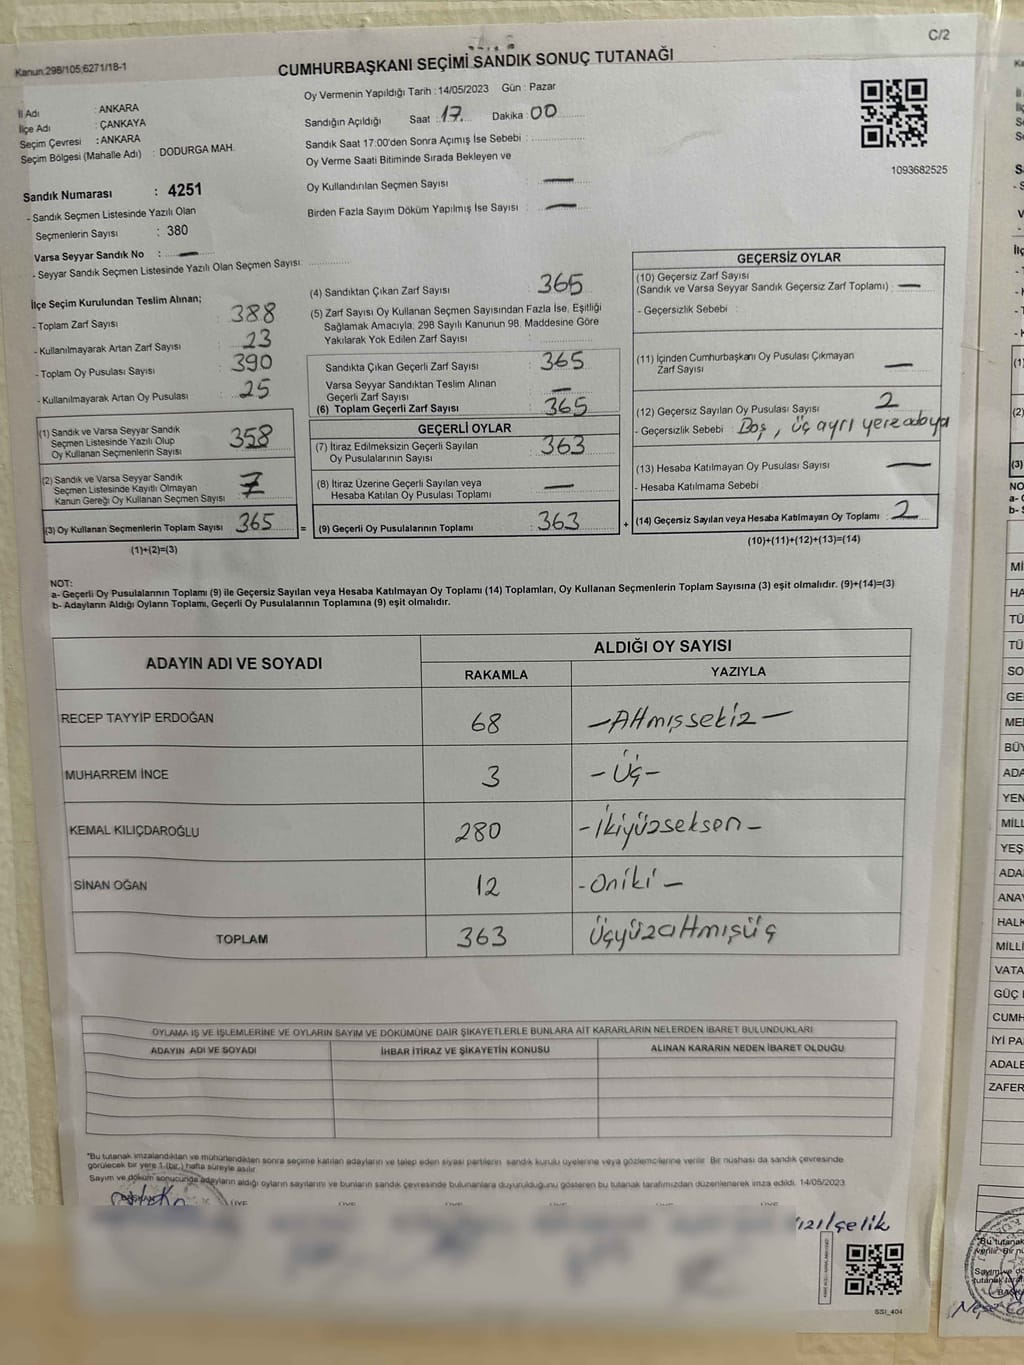 C/2
Kanun:298/105;6271/18-1
CUMHURBAŞKANI SEÇİMİ SANDIK SONUÇ TUTANAĞI
İl Adı : ANKARA
İlçe Adı : ÇANKAYA
Seçim Çevresi : ANKARA
Seçim Bölgesi (Mahalle Adı) : DODURGA MAH.
Oy Vermenin Yapıldığı Tarih : 14/05/2023 Gün : Pazar
Sandığın Açıldığı Saat : 17. Dakika : 00
Sandık Saat 17:00'den Sonra Açımış İse Sebebi :
Oy Verme Saati Bitiminde Sırada Bekleyen ve
Oy Kullandırılan Seçmen Sayısı : —
Birden Fazla Sayım Döküm Yapılmış İse Sayısı : —
1093682525
Sandık Numarası : 4251
- Sandık Seçmen Listesinde Yazılı Olan
Seçmenlerin Sayısı : 380
Varsa Seyyar Sandık No : —
- Seyyar Sandık Seçmen Listesinde Yazılı Olan Seçmen Sayısı:
İlçe Seçim Kurulundan Teslim Alınan;
- Toplam Zarf Sayısı : 388
- Kullanılmayarak Artan Zarf Sayısı : 23
- Toplam Oy Pusulası Sayısı : 390
- Kullanılmayarak Artan Oy Pusulası : 25
(1) Sandık ve Varsa Seyyar Sandık
Seçmen Listesinde Yazılı Olup
Oy Kullanan Seçmenlerin Sayısı : 358
(2) Sandık ve Varsa Seyyar Sandık
Seçmen Listesinde Kayıtlı Olmayan
Kanun Gereği Oy Kullanan Seçmen Sayısı : 7
(3) Oy Kullanan Seçmenlerin Toplam Sayısı : 365 =
(1)+(2)=(3)
(4) Sandıktan Çıkan Zarf Sayısı : 365
(5) Zarf Sayısı Oy Kullanan Seçmen Sayısından Fazla İse, Eşitliği
Sağlamak Amacıyla; 298 Sayılı Kanunun 98. Maddesine Göre
Yakılarak Yok Edilen Zarf Sayısı :
Sandıkta Çıkan Geçerli Zarf Sayısı : 365
Varsa Seyyar Sandıktan Teslim Alınan
Geçerli Zarf Sayısı : —
(6) Toplam Geçerli Zarf Sayısı : 365
GEÇERLİ OYLAR
(7) İtiraz Edilmeksizin Geçerli Sayılan
Oy Pusulalarının Sayısı : 363
(8) İtiraz Üzerine Geçerli Sayılan veya
Hesaba Katılan Oy Pusulası Toplamı : —
(9) Geçerli Oy Pusulalarının Toplamı : 363 +
GEÇERSİZ OYLAR
(10) Geçersiz Zarf Sayısı
(Sandık ve Varsa Seyyar Sandık Geçersiz Zarf Toplamı) : —
- Geçersizlik Sebebi :
(11) İçinden Cumhurbaşkanı Oy Pusulası Çıkmayan
Zarf Sayısı : —
(12) Geçersiz Sayılan Oy Pusulası Sayısı : 2
- Geçersizlik Sebebi : Boş, üç ayrı yere adaya
(13) Hesaba Katılmayan Oy Pusulası Sayısı : —
- Hesaba Katılmama Sebebi :
(14) Geçersiz Sayılan veya Hesaba Katılmayan Oy Toplamı : 2
(10)+(11)+(12)+(13)=(14)
NOT:
a- Geçerli Oy Pusulalarının Toplamı (9) ile Geçersiz Sayılan veya Hesaba Katılmayan Oy Toplamı (14) Toplamları, Oy Kullanan Seçmenlerin Toplam Sayısına (3) eşit olmalıdır. (9)+(14)=(3)
b- Adayların Aldığı Oyların Toplamı, Geçerli Oy Pusulalarının Toplamına (9) eşit olmalıdır.
ADAYIN ADI VE SOYADI ALDIĞI OY SAYISI
RAKAMLA YAZIYLA
RECEP TAYYİP ERDOĞAN 68 —Altmışsekiz—
MUHARREM İNCE 3 —Üç—
KEMAL KILIÇDAROĞLU 280 —İkiyüzseksen—
SİNAN OĞAN 12 —Oniki—
TOPLAM 363 Üçyüzaltmışüç
OYLAMA İŞ VE İŞLEMLERİNE VE OYLARIN SAYIM VE DÖKÜMÜNE DAİR ŞİKAYETLERLE BUNLARA AİT KARARLARIN NELERDEN İBARET BULUNDUKLARI
ADAYIN ADI VE SOYADI İHBAR İTİRAZ VE ŞİKAYETİN KONUSU ALINAN KARARIN NEDEN İBARET OLDUĞU
"Bu tutanak imzalandıktan ve mühürlendikten sonra seçime katılan adayların ve talep eden siyasi partilerin sandık kurulu üyelerine veya gözlemcilerine verilir. Bir nüshası da sandık çevresinde
görülecek bir yere 1 (bir) hafta süreyle asılır.
Sayım ve döküm sonucunda adayların aldığı oyların sayılarını ve bunların sandık çevresinde bulunanlara duyurulduğunu gösteren bu tutanak tarafımızdan düzenlenerek imza edildi. 14/05/2023
SSI_404